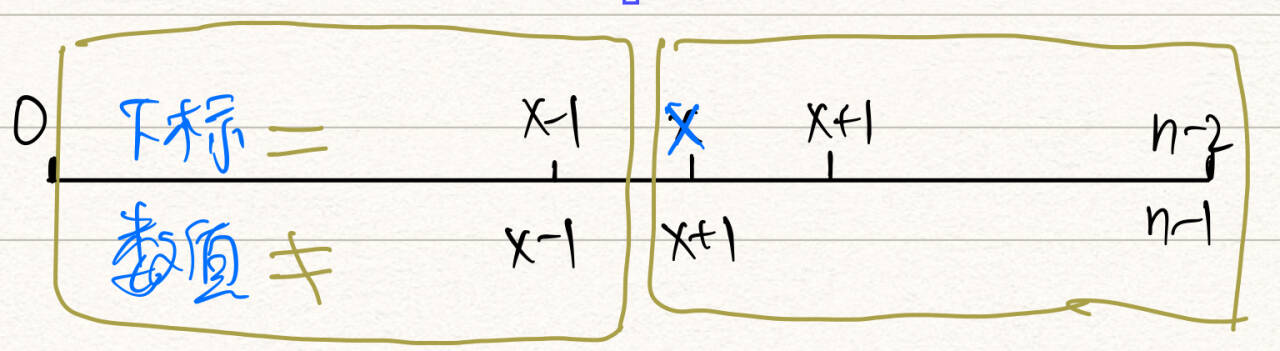 0 下标 = x-1 x x+1 n-2
数值 ≠ x-1 x+1 n-1